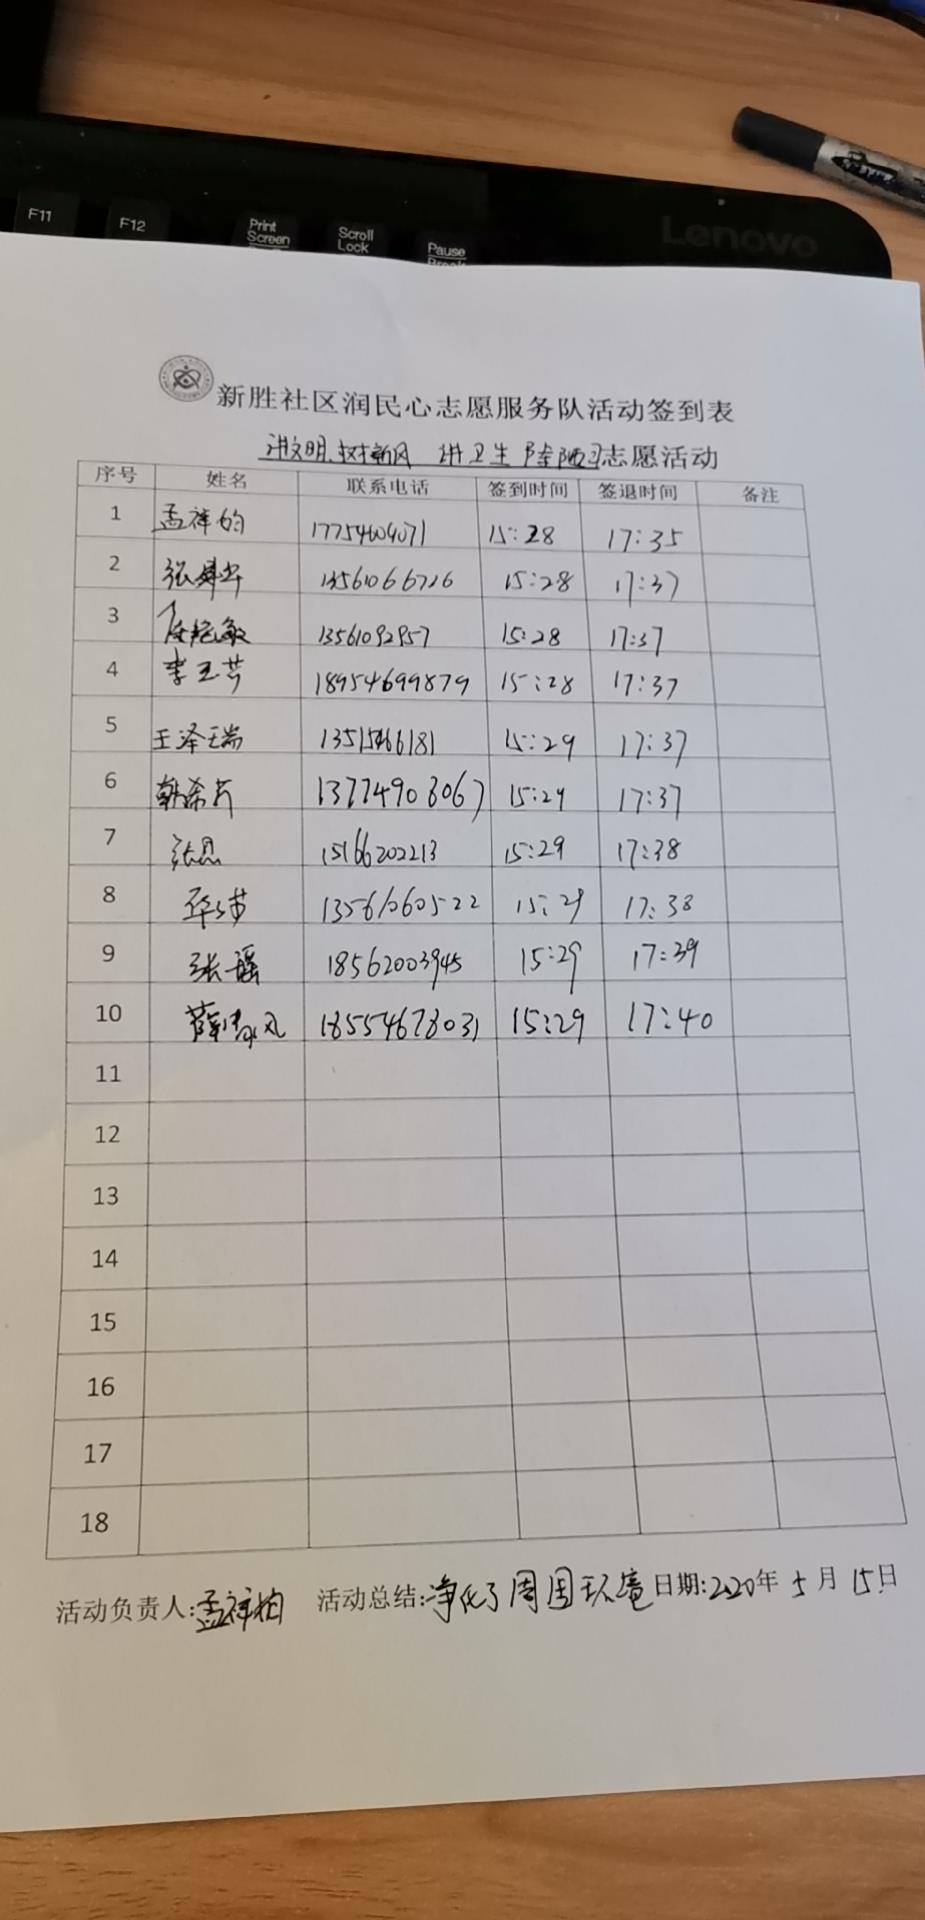 F11 F12 Print Screen Scroll Lock Pause Break Lenovo
新胜社区润民心志愿服务队活动签到表
讲文明、树新风 讲卫生 除陋习志愿活动
序号 姓名 联系电话 签到时间 签退时间 备注
1 孟祥 17754604071 15:28 17:35
2 张 13561066716 15:28 17:37
3 任艳敏 13561092957 15:28 17:37
4 李玉芳 18954699879 15:28 17:37
5 王泽瑞 15:29 17:37
6 韩希芹 13774908067 15:29 17:37
7 张恩 15166202213 15:29 17:38
8 13561060522 15:29 17:38
9 张瑶 18562003945 15:29 17:39
10 薛春风 18554678031 15:29 17:40
11
12
13
14
15
16
17
18
活动负责人:孟祥 活动总结:净化了周围环境 日期:2020年5月15日